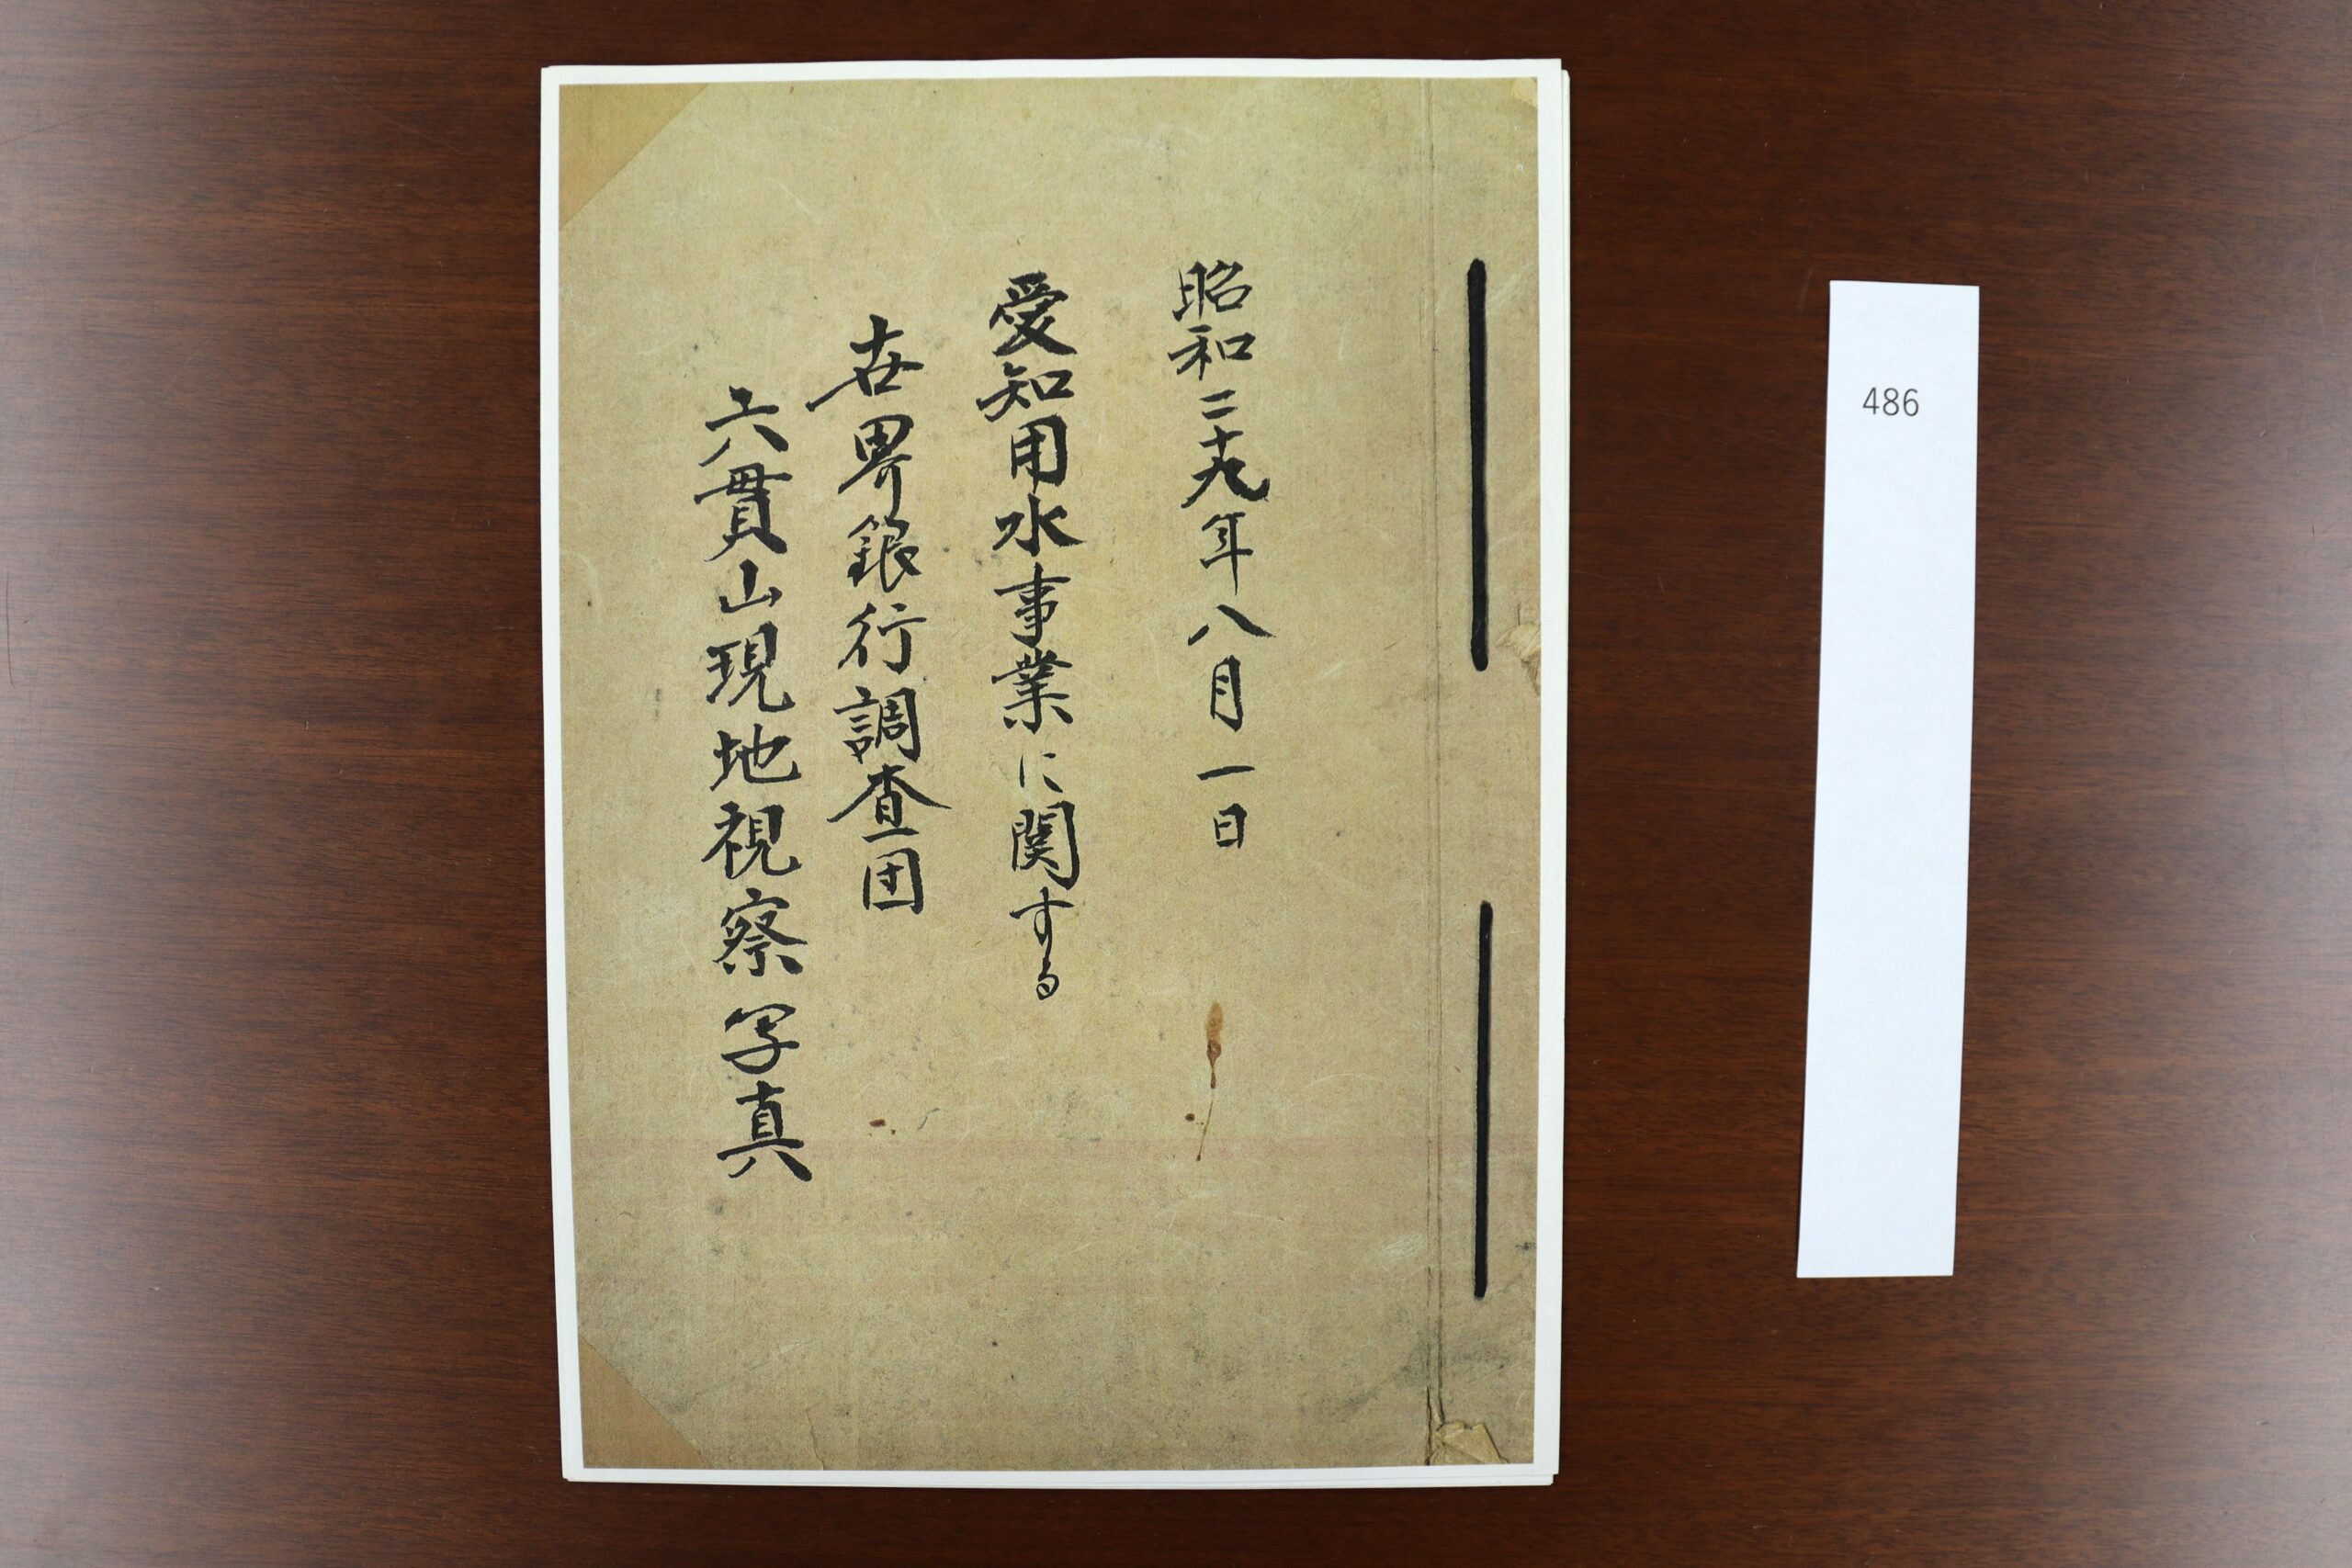 昭和二十九年八月一日
愛知用水事業に関する
世界銀行調査団
六貫山現地視察写真
486